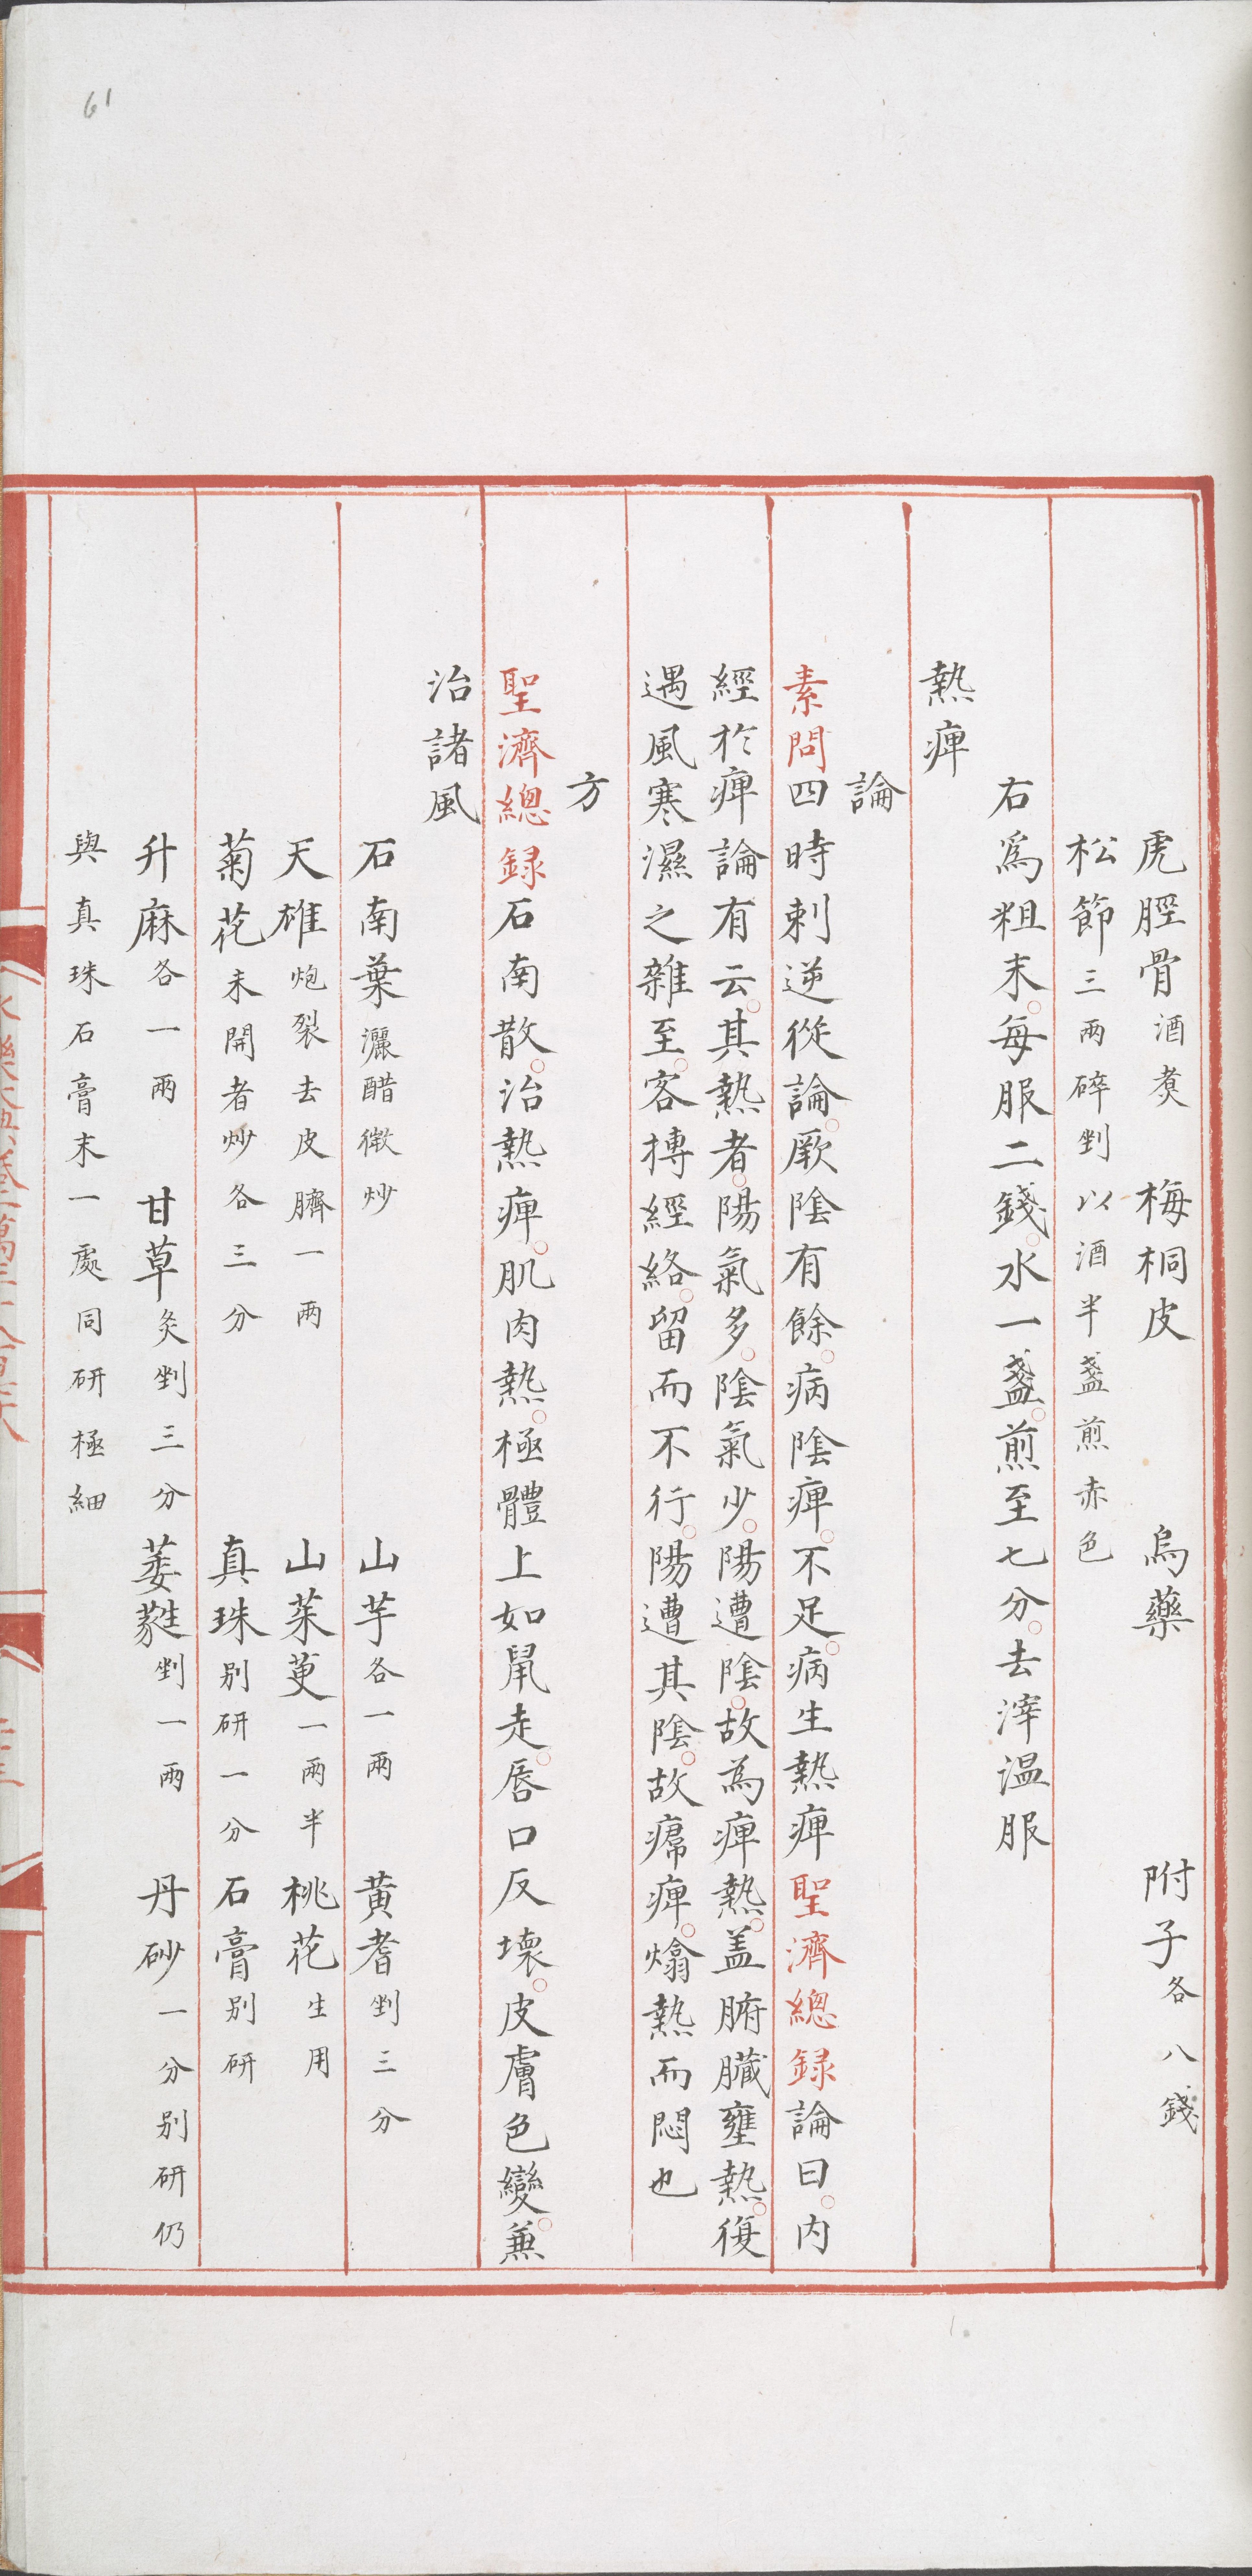 虎脛骨酒煑　梅桐皮　烏藥　附子各八錢
松節三兩碎剉以酒半盞煎赤色
右爲粗末每服二錢水一盞煎至七分去滓温服
熱痺
論
素問四時刺逆從論厥陰有餘病陰痺不足病生熱痺聖濟總録論曰内
經於痺論有云其熱者陽氣多陰氣少陽遭陰故為痺熱盖腑臟壅熱復
遇風寒濕之雜至客摶經絡留而不行陽遭其陰故㿏痺熻熱而悶也
方
聖濟總録石南散治熱痺肌肉熱極體上如鼠走唇口反壞皮膚色變兼
治諸風
石南葉灑醋微炒　山芋各一兩　黃耆剉三分
天雄炮裂去皮臍一兩　山茱萸一兩半　桃花生用
菊花未開者炒各三分　真珠别研一分　石膏别研
升麻各一兩　甘草炙剉三分　萎蕤剉一兩　丹砂一分别研仍
與真珠石膏末一處同研極細
61